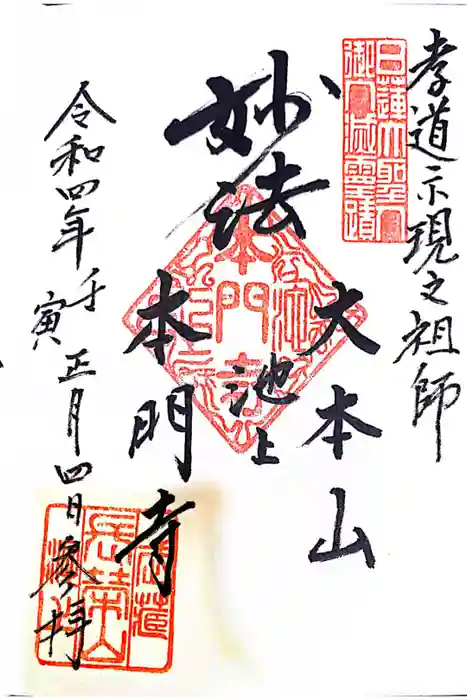 孝道示現之祖師
日蓮大聖人
御入滅霊蹟
妙法
大本山
池上
本門寺
令和四年壬寅正月四日参拝
長栄山